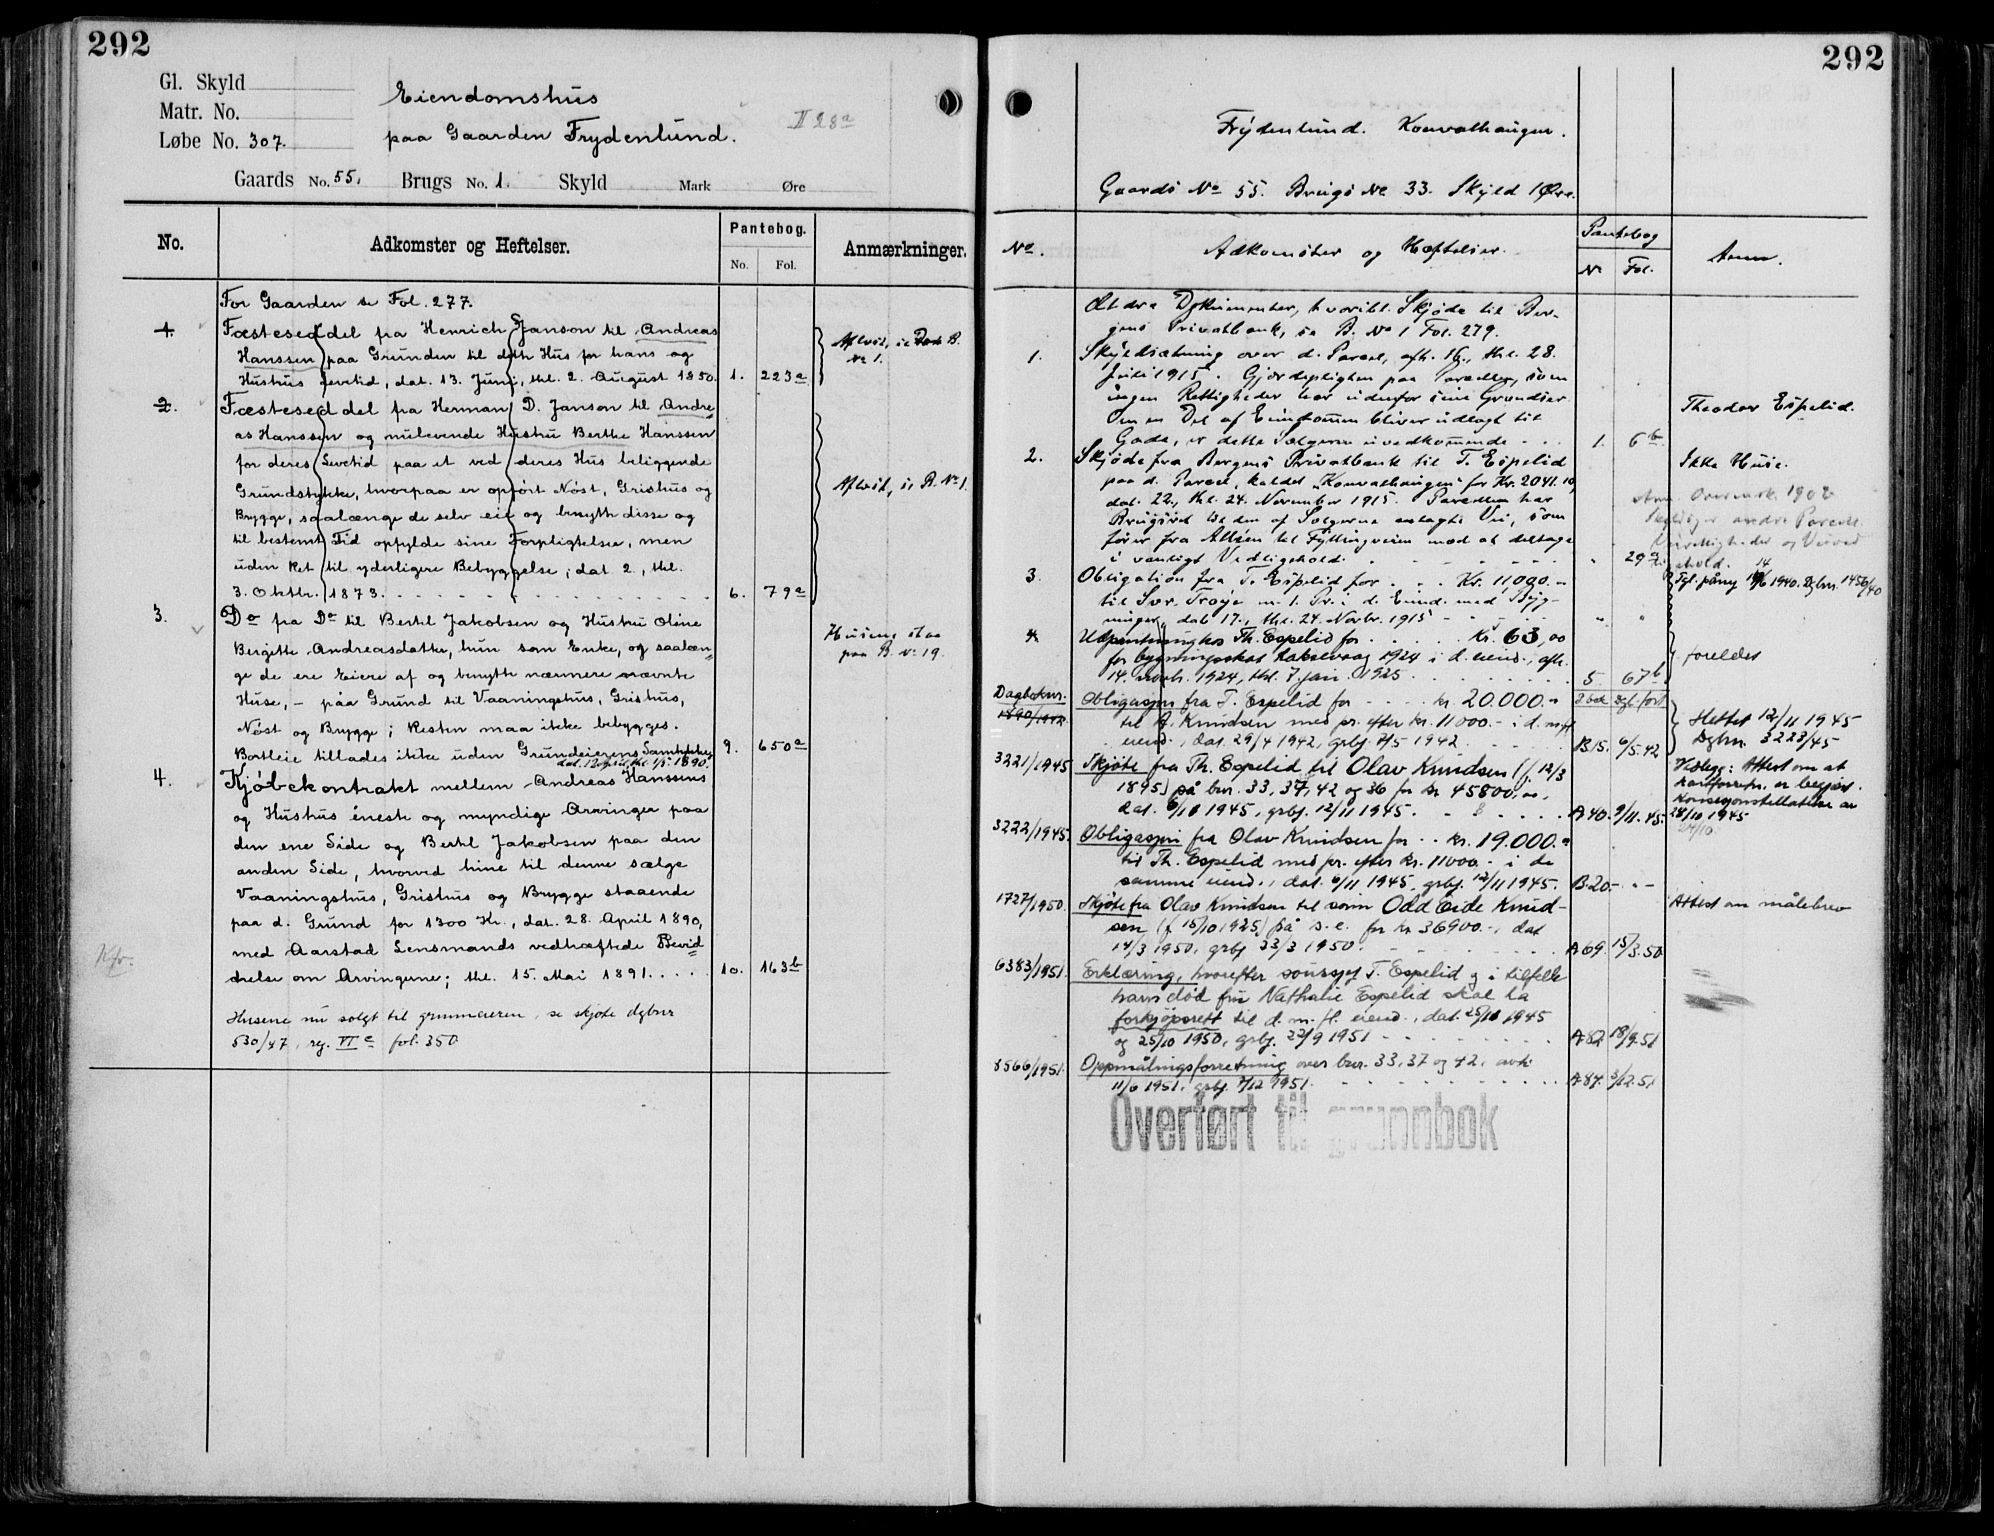 292
Gl. Skyld
Matr. No.
Løbe No. 307.
Eiendomshus
paa Gaarden Frydenlund.
II 28a
Gaards No. 55. Brugs No. 1. Skyld Mark Øre
No. Adkomster og Heftelser. Pantebog. No. Fol. Anmærkninger.
For Gaarden se Fol. 277.
1. Fæsteseddel fra Henrich Janson til Andreas
Hanssen paa Grunden til deth Hus for hans og
Hustrus Levetid, dat. 13. Juni, thl. 2. August 1850. 1. 223a
Aflæst, se B.
No 1.
2. Fæsteseddel fra Herman D. Janson til Andre-
as Hanssen og nulevende Hustru Berthe Hanssen
for deres Levetid paa et ved deres Hus beliggende
Grundstykke, hvorpaa er opført Nøst, Grishus og
Brygge, saalænge de selv eie og benytte disse og
til bestemt Tid opfylde sine Forpligtelser, men
uden Ret til yderligere Bebyggelse; dat. 2., thl.
3. Oktbr. 1873. 6. 79a
Aflæst, se B. No 1.
3. Do fra Do til Bertil Jakobsen og Hustru Oline
Bergitte Andreasdatter, hun som Enke, og saalæn-
ge de ere Eiere af og benytte nærmere nævnte
Huse, - paa Grund til Vaaningshus, Grishus,
Nøst og Brygge; Resten maa ikke bebygges.
Bortleie tillades ikke uden Grundeierens Samtykke,
1890. 9. 650a
Husene staa
paa B. No 19.
4. Kjøbekontrakt mellem Andreas Hanssens
og Hustrus éneste og myndige Arvinger paa
den ene Side og Bertil Jakobsen paa den
anden Side, hvorved hine til denne sælge
Vaaningshus, Grishus og Brygge staaende
paa d. Grund for 1300 Kr., dat. 28. April 1890,
med Aarstad Lensmands vedhæftede Bevid-
nelse om Arvingerne; thl. 15. Mai 1891. 10. 163b
Kfr.
Husene nu solgt til grunneieren, se skjøte dgbnr
530/47, reg. VI c fol. 350
292
Frydenlund. Konvalhaugen.
Gaards No 55. Brugs No 33. Skyld 1 Øre.
No. Adkomster og Hæftelser. Pantebog No Fol. Anm.
Ældre Dokumenter, hvoribl. Skjøde til Ber-
gens Privatbank, se B. No 1 Fol. 279.
1. Skyldsætning over d. Parcel, afh. 16., thl. 28.
Juli 1915. Gjerdepligten paa Parcellen, som
ingen Rettigheder har udenfor sine Grændser.
Om en Del af Eiendommen bliver udlagt til
Gade, er dette Sælgeren uvedkommende 1. 6b
Theodor Espelid.
2. Skjøde fra Bergens Privatbank til T. Espelid
paa d. Parcel, kaldet "Konvalhaugen" for Kr. 2041.10,
dat. 22., thl. 24. November 1915. Parcellen har
Brugsret til den af Sælgerne anlagte Vei, som
fører fra Alléen til Fyllingsveien mod at deltage
i vanligt Vedligehold. " 29a
Ikke Huse.
Anm. 1902
andre Parcell
3. Obligation fra T. Espelid for Kr. 11,000.-
til Sør. Troye m. 1. Pr. i d. Eiend. med Byg-
ninger, dat. 17., thl. 24. Novbr. 1915 " "
Tgl. påny 14/6 1940. Dgbnr. 1456/40
4. Utpantning hos Th. Espelid for kr. 63,00
for bygningsskat Laksevaag 1924 i d. eiend., afh.
14. novbr. 1924, thl. 7. jan. 1925 5. 67b
foreldet
Dagboknr.
1890/1942
Obligasjon fra T. Espelid for kr. 20.000.-
til A. Knudsen med pr. efter kr. 11000.- i d. m.fl.
eiend., dat. 29/4 1942, grbf. 7/5 1942. B15. 6/5.42
Slettet 12/11 1945
Dgbnr. 3223/45
3221/1945 Skjøte fra Th. Espelid til Olav Knudsen (f. 12/3
1895) på bnr. 33, 37, 42 og 36 for kr. 45800,00,
dat. 6/10 1945, grbf. 12/11 1945. A40. 9/11.45.
Vedlegg: Attest om at
kartforretn. er begjært.
Konsesjonstillatelse av
28/10 1945
24/10
3222/1945. Obligasjon fra Olav Knudsen for kr. 19.000.-
til Th. Espelid med pr. efter kr. 11000.- i de
samme eiend., dat. 6/11 1945, grbf. 12/11 1945. B20. - " -
1727/1950. Skjøte fra Olav Knudsen til sønn Odd Eide Knud-
sen (f. 15/10 1925) på s. e. for kr 36900.-, dat
14/3 1950, grbf 23/3 1950. A69. 15/3.50
Attest om målebrev
6383/1951. Erklæring, hvorefter sousjef T. Espelid og i tilfelle
hans død fru Nathalie Espelid skal ha
forkjøpsrett til d. m. fl. eiend., dat. 25/10 1945
og 25/10 1950, grbf. 22/9 1951 A82 18/9.51
8566/1951. Oppmålingsforretning over bnr. 33, 37 og 42, avh.
11/6 1951, grbf. 7/12 1951. A87. 3/12.51
Overført til grunnbok